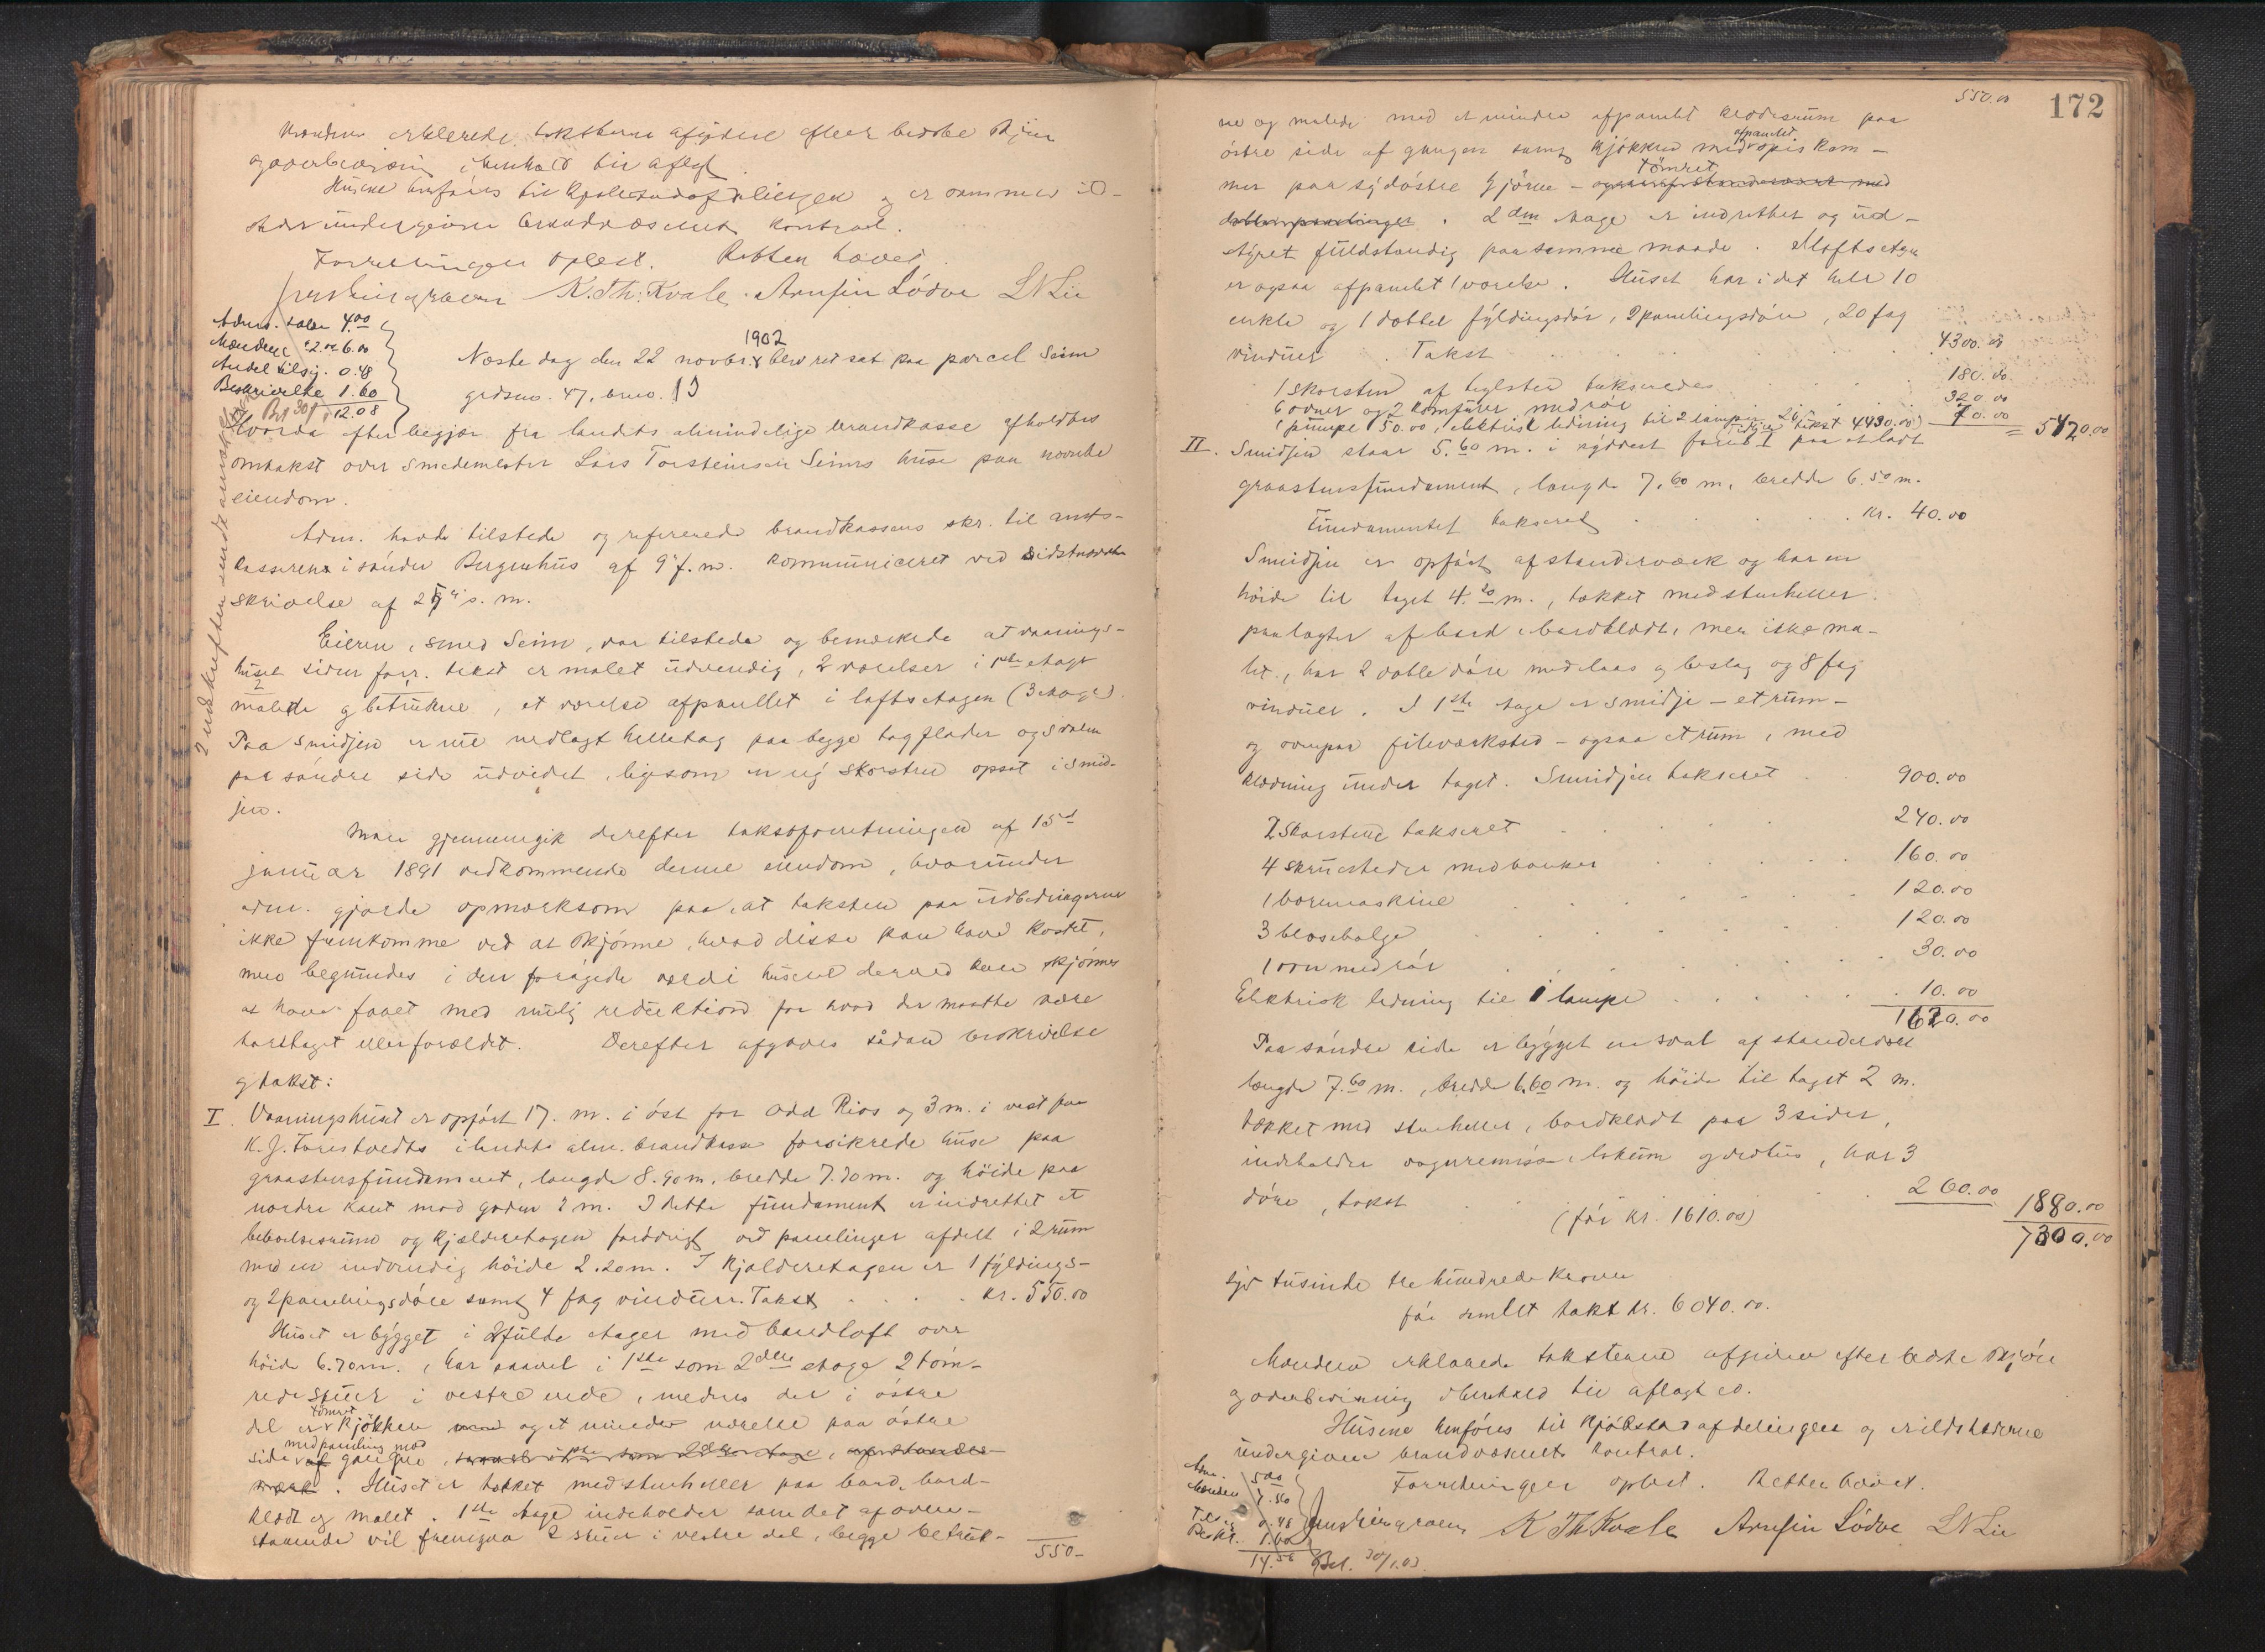 Mændene erklærede taksterne afgivne efter bedste skjøn
og overbevisning i henhold til aflagt
Husene henføres til Kjøbstadafdelingen og er sammen ild-
undergivne brandvæsenets kontrol.
Forretningen oplest. Retten hævet
K. Th. Kvale. Arnfin Lödve LN Lie
Adm. 4.00
Mændene 2.00 6.00
Andel tilsig. 0.48
Beskrivelse 1.60
12.08
Næste dag den 22 novbr. 1902 blev ret sat paa parcel Seim
grdsno. 47, bno. 13
Hvorda efter begjær fra landets almindelige brandkasse afholdtes
omtakst over smedemester Lars Torsteinsen Seims huse paa nævnte
eiendom.
Adm. havde tilstede og refererede brandkassens skr. til amts-
kassereren i söndre Bergenhus af 9 f. m. kommuniceret ved sidstnævnte
skrivelse af s. m.
Eieren, smed Seim, var tilstede og bemærkede at vaanings-
huset siden forr. takst er malet udvendig, 2 værelser i 1ste etage
malede og betrukne, et værelse afpanellet i loftsetagen (3 etage).
Paa smidjen er nu nedlagt helletag paa begge tagflader og svalen
paa söndre side udvidet, ligesom en ny skorsten opsat i smid-
jen.
Man gjennemgik derefter takstforretningen af 15de
januar 1891 vedkommende denne eiendom, hvorunder
adm. gjorde opmærksom paa, at taksten paa udbedringerne
ikke fremkomme ved at skjönne, hvad disse kan have kostet,
men begrundes i den forøgede værdi husene derved kan skjönnes
at have faaet med mulig reduktion for hvad der maatte være
borttaget eller forældet. Derefter afgaves sådan beskrivelse
og takst:
I. Vaaningshuset er opført 17. m. i öst for Odd Rios og 3 m. i vest for
K. J. i landets alm. brandkasse forsikrede huse paa
graastensfundament, længde 8.90 m. bredde 7.70 m. og höide paa
nordre kant mod gaden 2 m. I dette fundament er indrettet et
beboelsesrum og kjælderetagen forövrigt ved panelinger afdelt i 2 rum
med en indvendig höide 2.20 m. I kjælderetagen er 1 fyldings-
og 2 panelingsdöre samt 4 fag vinduer. Takst kr. 550.00
Huset er bygget i 2 fulde etager med bordloft over
höide 6.70 m., har saavel i 1ste som 2den etage 2 töm-
rede stuer i vestre ende, medens der i östre
del er tömret kjökken og et mindre værelse paa östre
side med paneling mod gangene,
. Huset er tækket med stenheller paa bord, bord-
klædt og malet. 1ste etage indeholder som det af oven-
staaende vil fremgaa 2 stuer i vestre del, begge betruk-
550-
550.00
172
ne og malede med et mindre afpanelet klædesrum paa
östre side af gangen samt kjökken med afpanelet spiskam-
mer paa sydöstre hjörne - tömret
. 2den etage er indrettet og ud-
styret fuldstændig paa samme maade. I loftsetagen
er ogsaa afpanelet 1 værelse. Huset har i det hele 10
enkle og 1 dobbel fyldingsdör, 2 panelingsdöre, 20 fag
vinduer. Takst 4300.00
1 skorsten af teglsten takseredes 180.00
6 ovner og 2 komfurer med rör 320.00
1 pumpe 50.00, elektrisk ledning til 2 lamper 20 70.00 = 5420.00
(tidligere takst 4430.00)
II. Smidjen staar 5.60 m. i sydvest for I paa et lödt
graastensfundament, længde 7.60 m, bredde 6.50 m.
Fundamentet takseret kr. 40.00
Smidjen er opført af standerværk og har en
höide til taget 4.20 m., tækket med stenheller
paa lægter af bord, bordklædt, men ikke ma-
let, har 2 doble döre med laas og beslag og 8 fag
vinduer. I 1ste etage er smidje - et rum -
og ovenpaa fileværksted - ogsaa et rum, med
klædning under taget. Smidjen takseret 900.00
2 skorstene takseret 240.00
4 skruestedre med bænker 160.00
1 boremaskine 120.00
3 blæsebælge 120.00
1 ovn med rör 30.00
Elektrisk ledning til 1 lampe 10.00
1620.00
Paa söndre side er bygget en sval af standerværk
længde 7.60 m., bredde 6.60 m. og höide til taget 2 m.
tækket med stenheller, bordklædt paa 3 sider,
indeholder vognremise, og vedhus, har 3
döre, takst 260.00
(för kr. 1610.00) 1880.00
7300.00
syv tusinde tre hundrede kroner
för samlet takst kr. 6040.00.
Mændene erklærede taksterne afgivne efter bedste skjön
og overbevisning i henhold til aflagt ed.
Husene henföres til Kjöbstadafdelingen og er ildstederne
undergivne brandvæsenets kontrol.
Forretningen oplest. Retten hævet.
Adm. 5.00
Mændene 7.50
Tilsig 0.48
Beskr. 1.60
14.58 Bet. 30/1.03
K Th Kvale Arnfin Lödve LN Lie